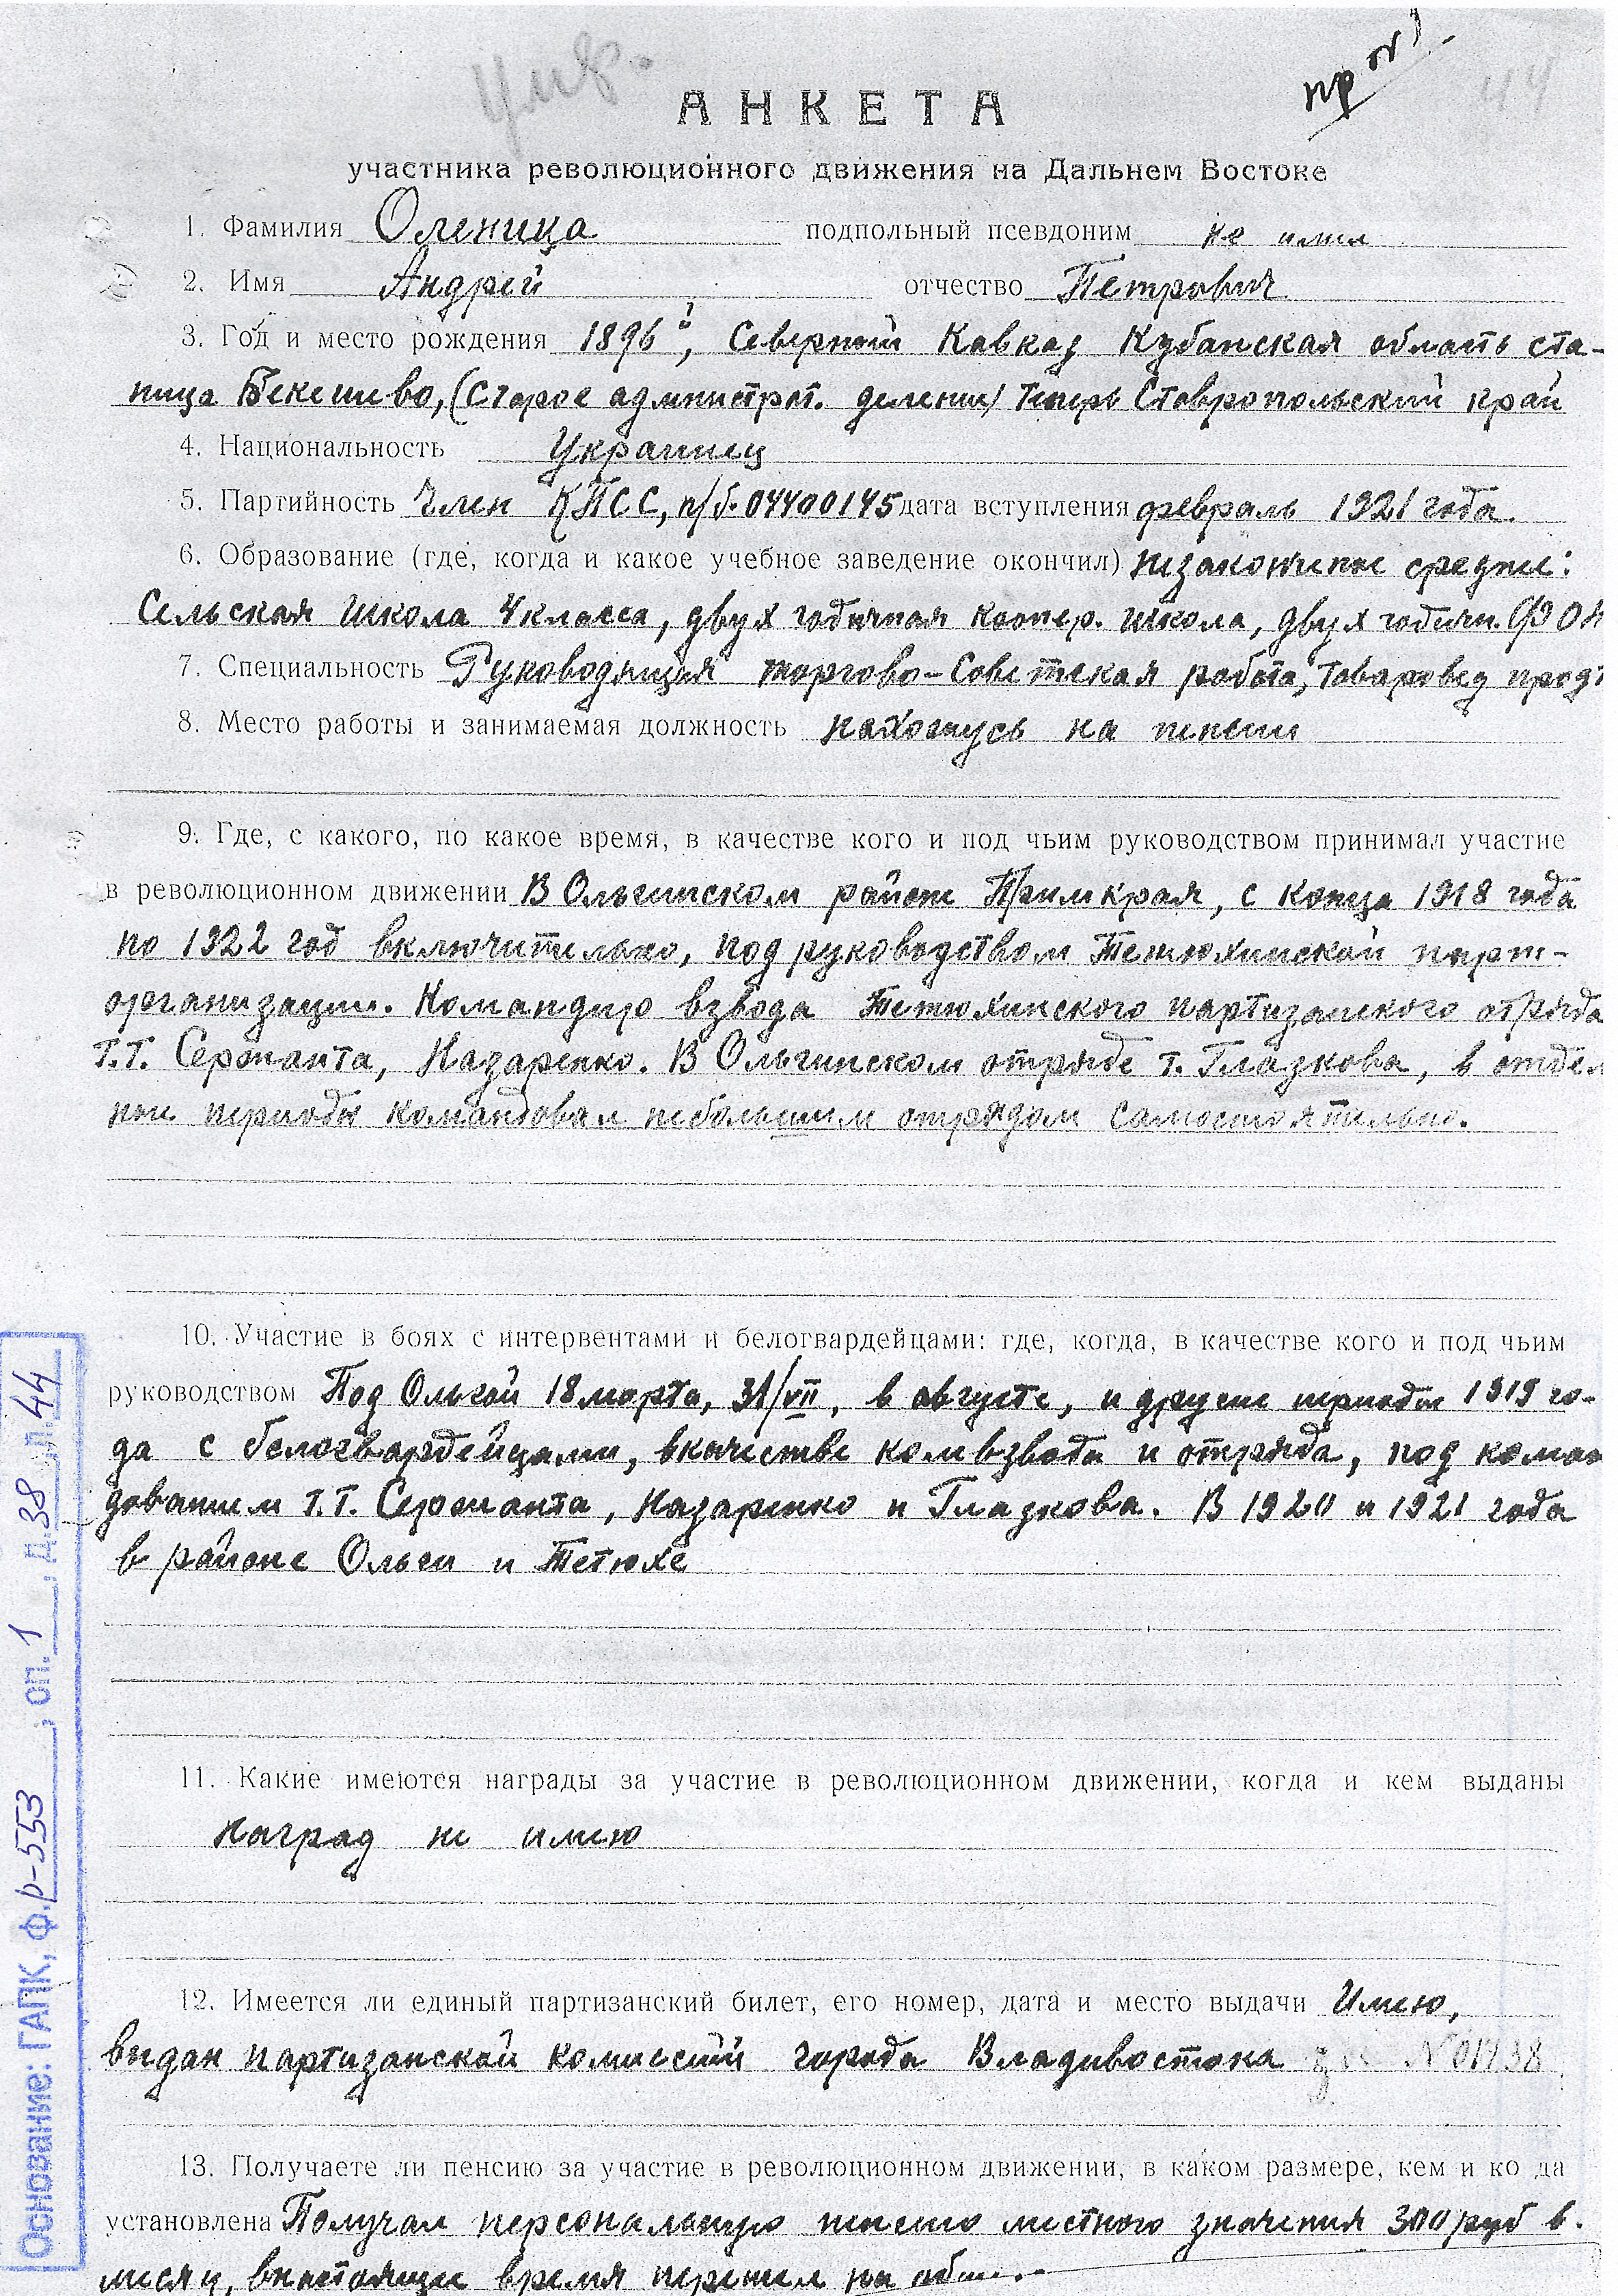 умер.
пр
44
АНКЕТА
участника революционного движения на Дальнем Востоке
1. Фамилия Оленица подпольный псевдоним не имел
2. Имя Андрей отчество Петрович
3. Год и место рождения 1896, Северный Кавказ Кубанская область ста-
ница Бекешево, (старое администрат. деление) Теперь Ставропольский край
4. Национальность Украинец
5. Партийность Член КПСС, п/б. 04400145 дата вступления февраль 1921 года.
6. Образование (где, когда и какое учебное заведение окончил) незаконченое средние:
Сельская школа 4 класса, двух годичная коопер. школа, двух годичн.
7. Специальность Руководящия торгово-Советская работа, товаровед прод
8. Место работы и занимаемая должность нахожусь на пенсии
9. Где, с какого, по какое время, в качестве кого и под чьим руководством принимал участие
в революционном движении В Ольгинском районе Примкрая, с конца 1918 года
по 1922 год включительно, под руководством Тетюхинской парт-
организации. Командир взвода Тетюхинского партизанского отряда
т.т. Сержанта, Назаренко. В Ольгинском отряде т. Глазкова, в отдел
ные периоды командовал небольшим отрядом самостоятельно.
10. Участие в боях с интервентами и белогвардейцами: где, когда, в качестве кого и под чьим
руководством Под Ольгой 18 марта, 31/VII, в августе, и другие периоды 1919 го-
да с белогвардейцами, вкачестве комвзвода и отряда, под коман
дованием т.т. Сержанта, Назаренко и Глазкова. В 1920 и 1921 года
в районе Ольги и Тетюхе
11. Какие имеются награды за участие в революционном движении, когда и кем выданы
наград не имею
12. Имеется ли единый партизанский билет, его номер, дата и место выдачи Имею,
выдан партизанской комиссией города Владивостока N 01738
13. Получаете ли пенсию за участие в революционном движении, в каком размере, кем и ко да
установлена Получал персональную пенсию местного значения 300 руб в.
месяц, внастоящие время перешел на
Основание: ГАПК, ф. р-553, оп. 1, д. 38 л. 44